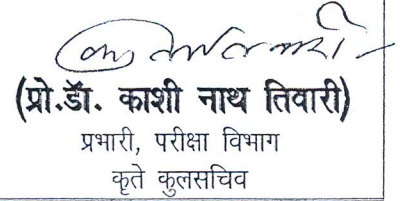 (प्रो.डॉ. काशी नाथ तिवारी)
प्रभारी, परीक्षा विभाग
कृते कुलसचिव